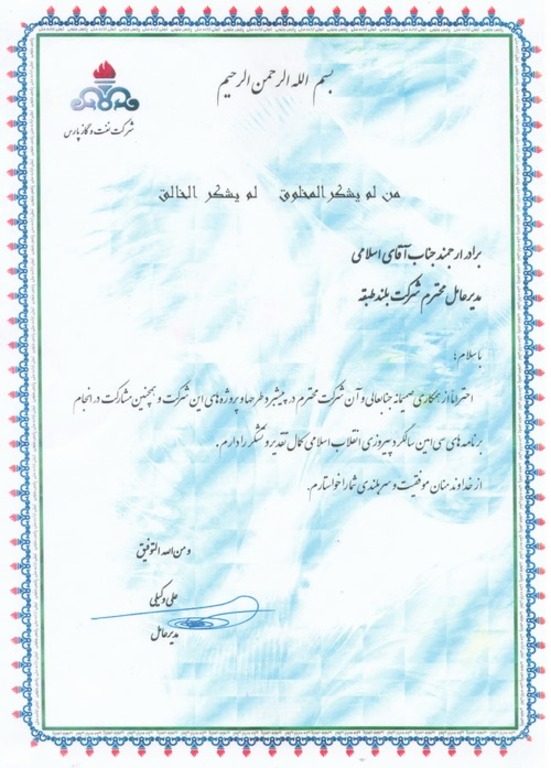 بسم الله الرحمن الرحیم
شرکت نفت و گاز پارس
من لم یشکر المخلوق لم یشکر الخالق
برادر ارجمند جناب آقای اسلامی
مدیرعامل محترم شرکت بلند طبقه
باسلام؛
احتراماً از همکاری صمیمانه جنابعالی و آن شرکت محترم در پیشبرد طرحها و پروژه های این شرکت و همچنین مشارکت در انجام
برنامه های سی امین سالگرد پیروزی انقلاب اسلامی کمال تقدیر و تشکر را دارم.
از خداوند منان موفقیت و سربلندی شما را خواستارم.
و من الله التوفیق
علی وکیلی
مدیرعامل